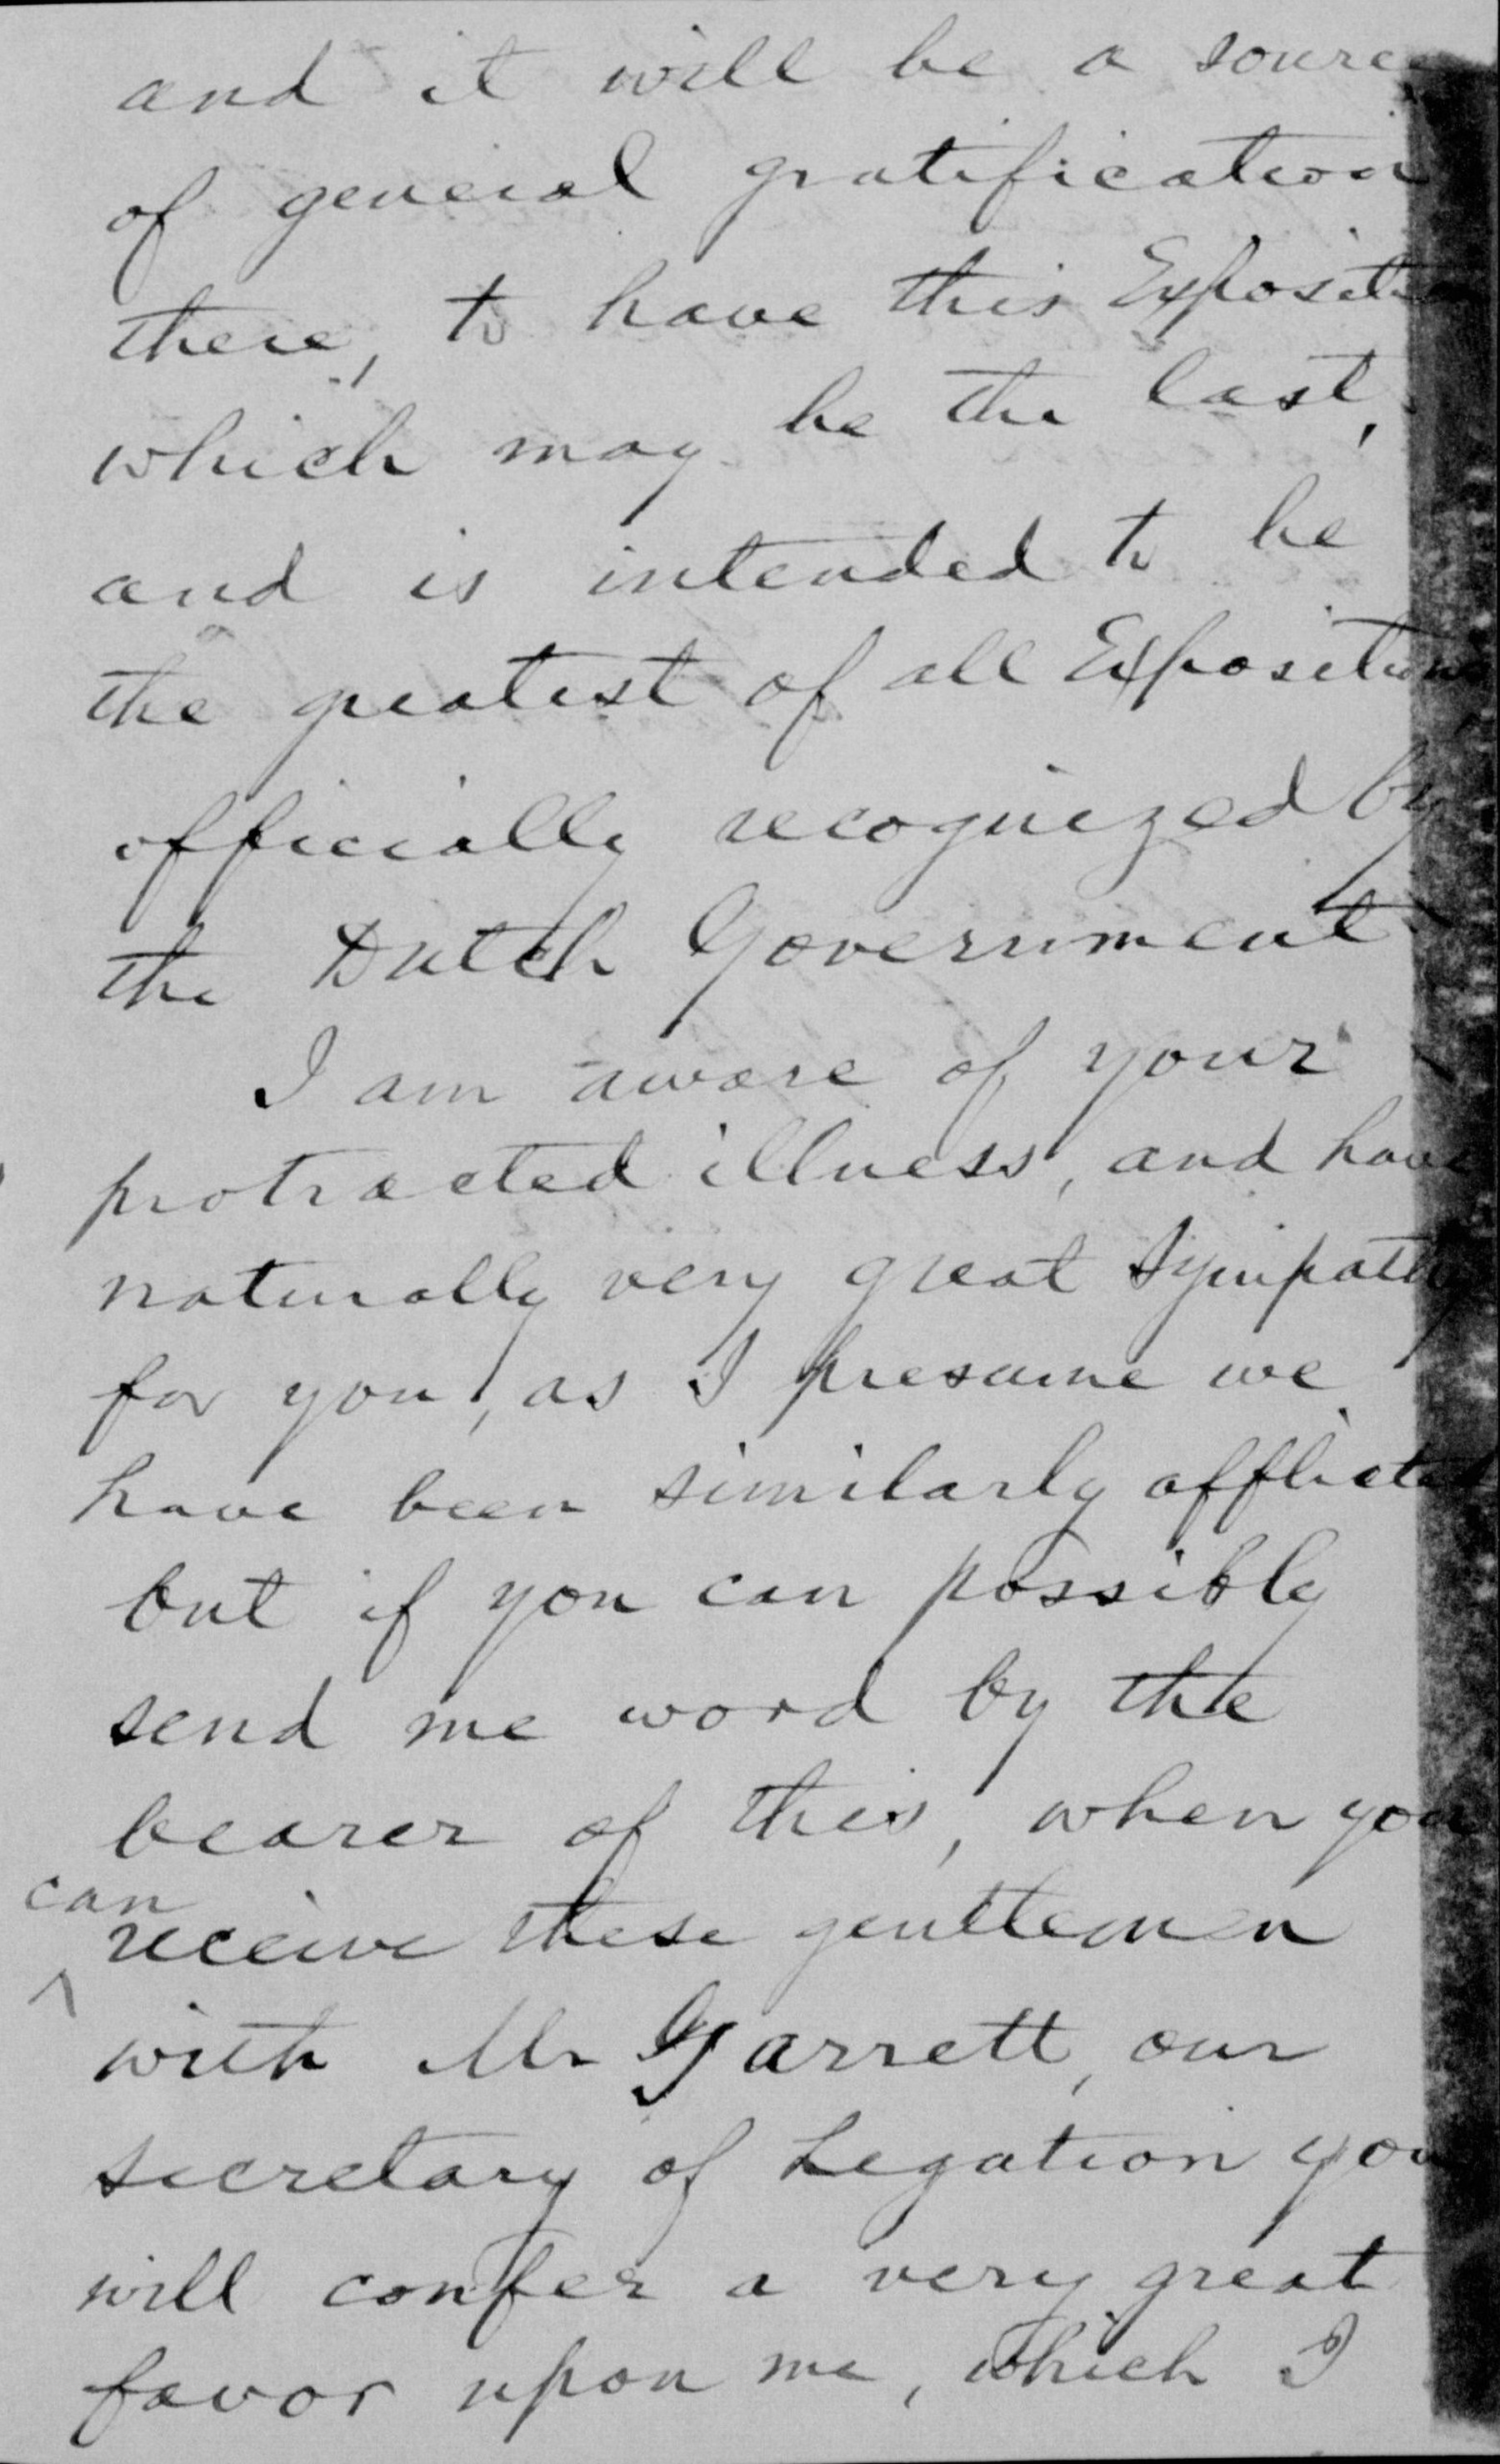 and it will be a source
of general gratification
there, to have this Exposition
which may be the last,
and is intended to be
the greatest of all Expositions
officially recognized by
the Dutch Government
I am aware of your
protracted illness, and have
naturally very great sympathy
for you, as I presume we
have been similarly afflicted
but if you can possibly
send me word by the
bearer of this, when you
can
receive these gentlemen
with Mr Garrett, our
secretary of Legation you
will confer a very great
favor upon me, which I